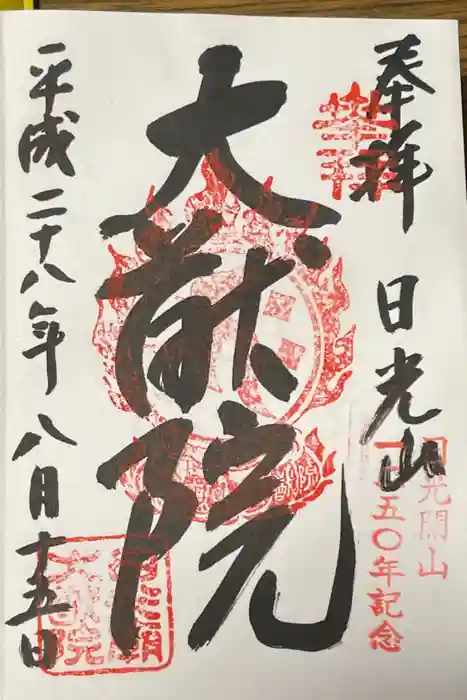 奉拝 日光山
日光開山
一二五〇年記念
大猷院
平成二十八年八月十五日
大猷院